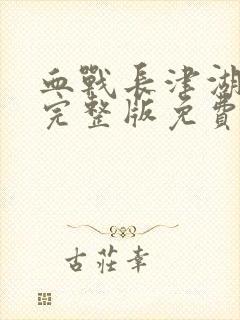 血戰長津湖
完整版免費
古莊幸